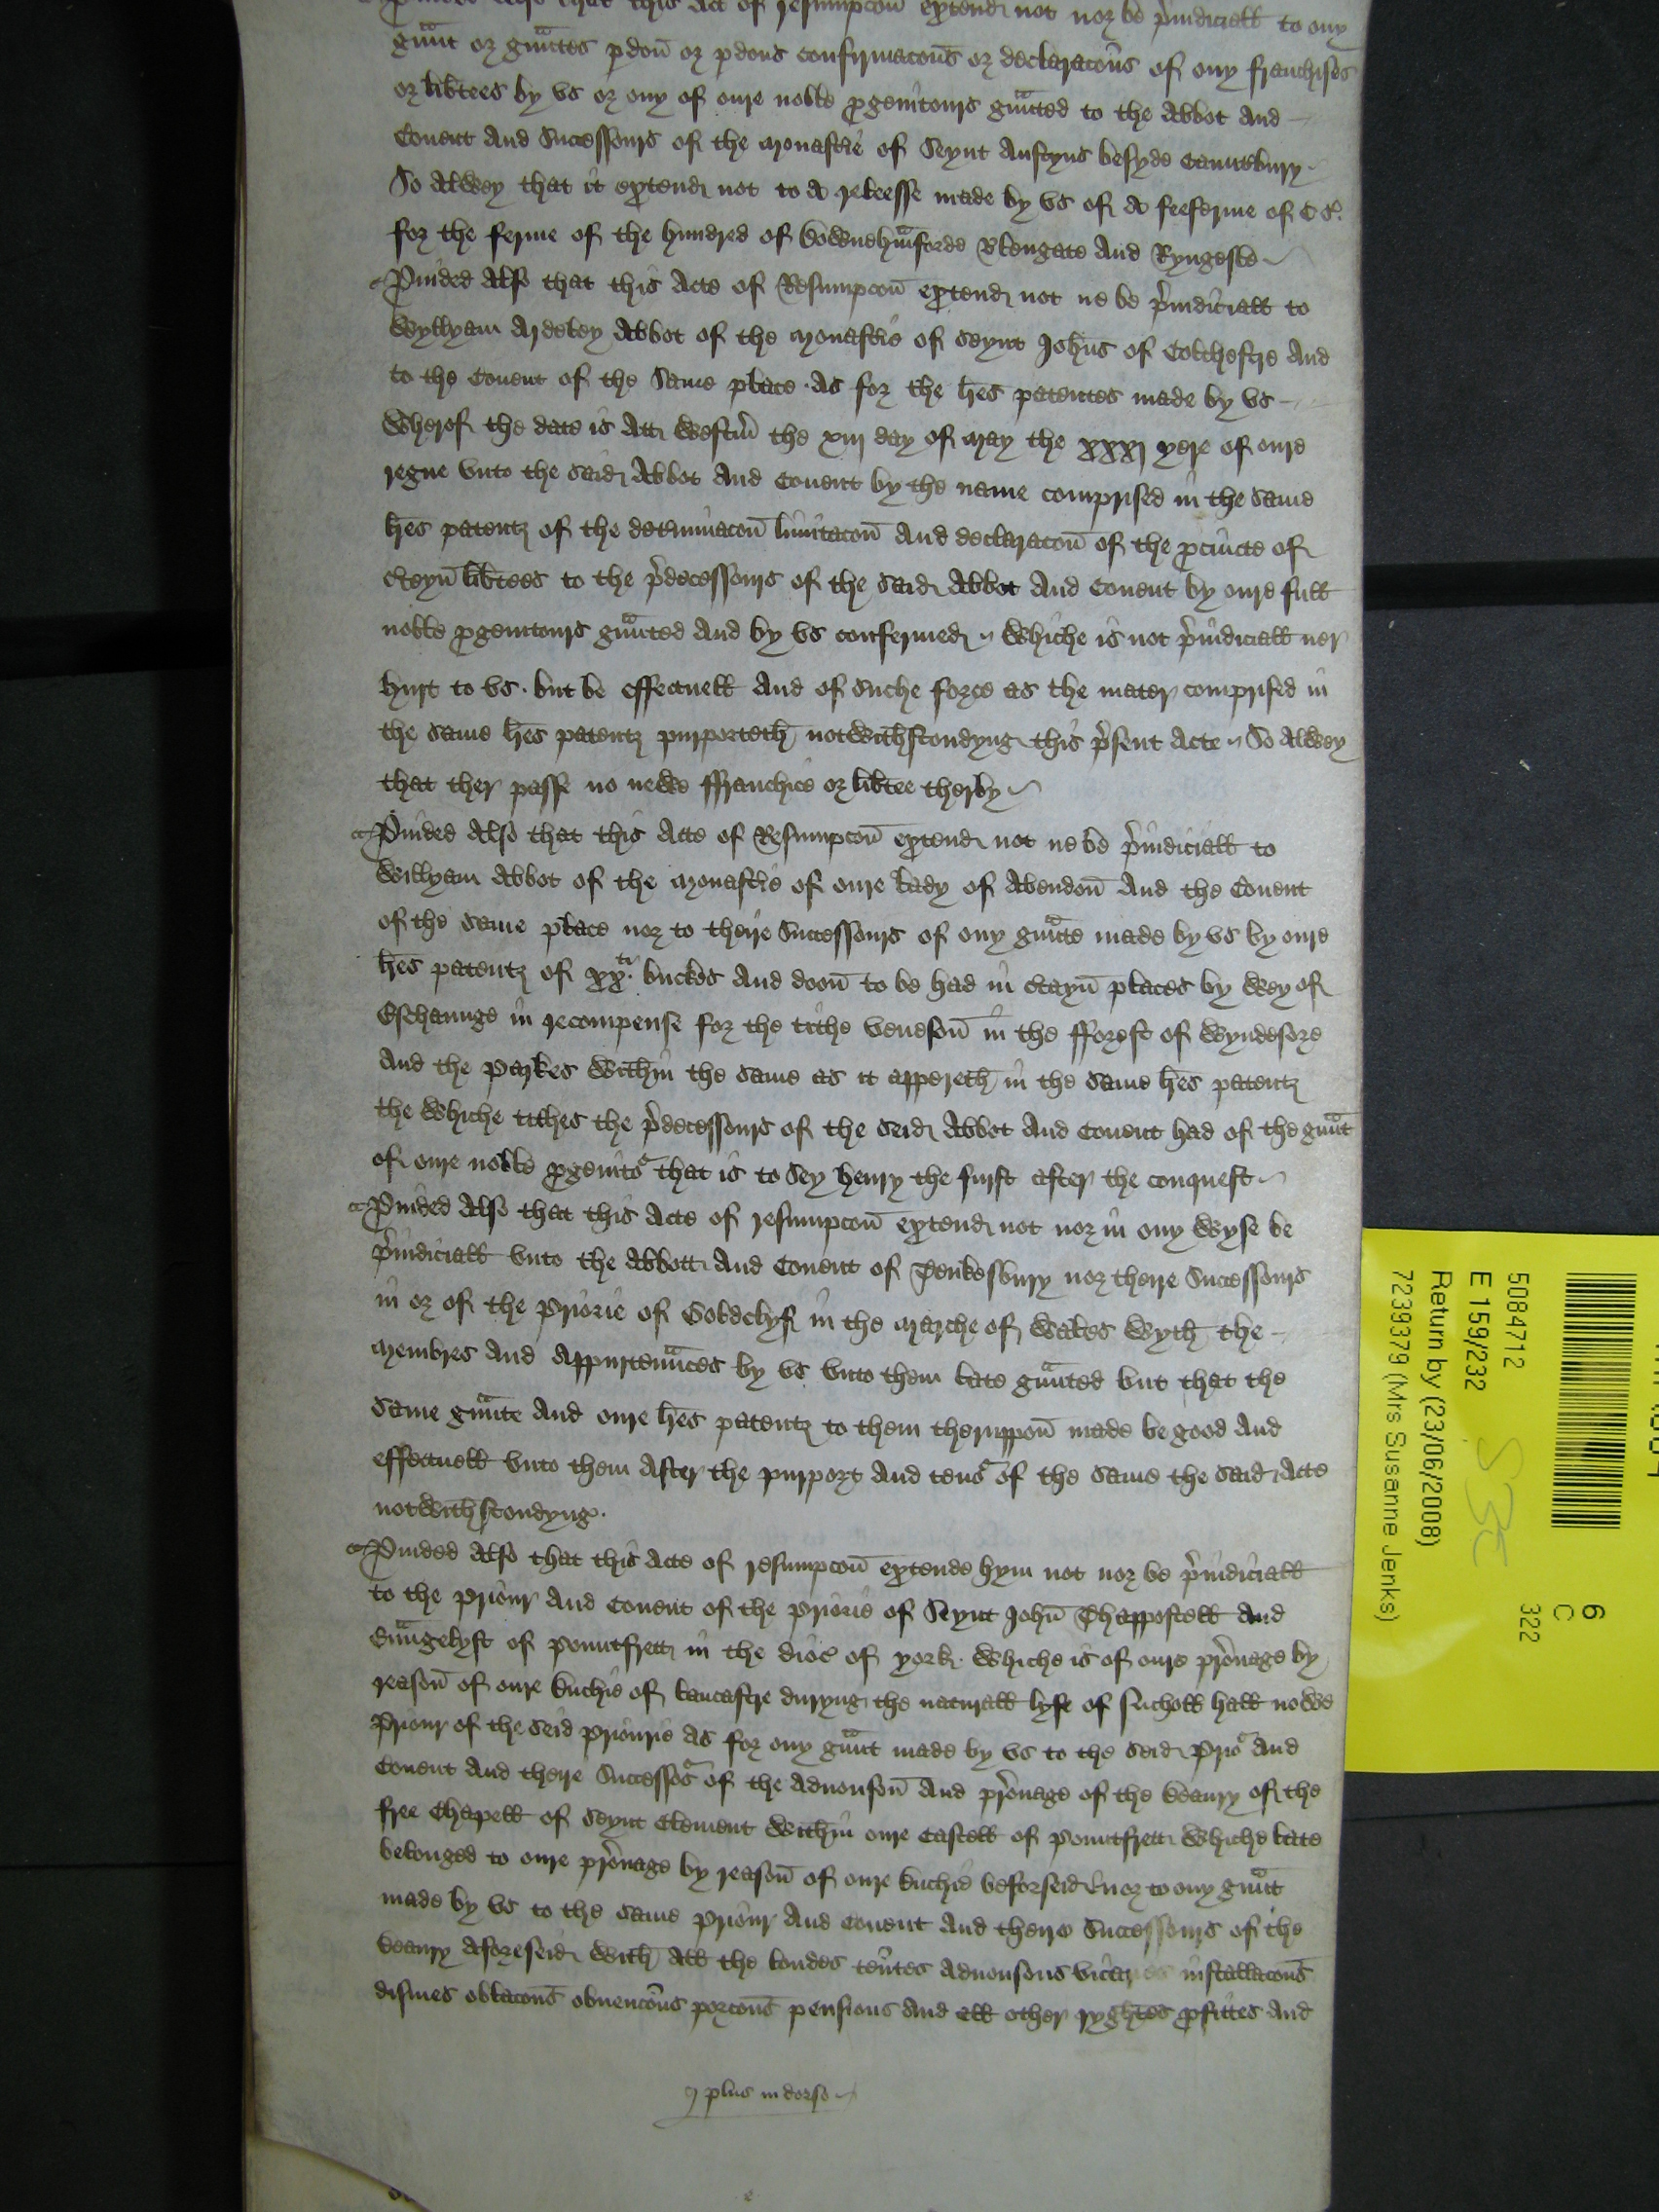 Prouided Also that this Act of resumpcoñ extend not nor be p̉iudiciall to ony
gûnt or gûntes pdoñ or pdons confirmacoñs or declaracoñs of ony franchises
or lib̃tees by vs or ony of oure noble pgenitours gûnted to the Abbot And
Couent And Successours of the Monast̃ie of Seynt Austyns besyde Caunt̃bury
So Alwey that it extend not to A releesse made by vs of A feeferme of C s.
for the ferme of the hundred of Downehamforde Blengate And Ryngeslo
Puided Also that this Acte of Resumpcoñ extend not ne be p̉iudiciall to
Wyllyam Ardeley Abbot of the Monast̃ie of Seynt Joħns of Colchestre And
to the Couent of the Same place As for the lr̃es patentes made by vs
Wherof the date is Att Westm̃ the xiij day of May the xxxj yere of oure
regne vnto the Said Abbot And Couent by the name comprised in the Same
lr̃es patentz of the det̃minacoñ limitacoñ And declaracoñ of the pcincte of
c̃teyñ lib̃tees to the p̉decessours of the Said Abbot And Couent by oure full
noble pgenitours gûnted And by vs confermed Whiche is not p̉iudiciall ner
hurt to vs but be effectuell And of Suche force as the mater comprised in
the Same lr̃es patentz purporteth notwithstondyng this p̉sent Acte So Alwey
that ther passe no newe ffranchice or lib̃tee therby
Puided Also that this Acte of Resumpcoñ extend not ne be p̉iudiciall to
Willyam Abbot of the Monast̃ie of oure lady of Abendoñ And the Couent
of the Same place nor to theire Successours of ony gûnte made by vs by oure
lr̃es patentz of xx.ti buckes And dooñ to be had in c̃tayñ places by wey of
Eschaunge in recompense for the tithe venesoñ in the fforest of Wyndesore
And the Parkes Within the Same as it appereth in the Same lr̃es patentz
the Whiche tithes the p̉decessours of the Seid Abbot And Couent had of the gûnt
of oure noble pgenitor that is to Sey henry the furst after the conquest
Puided Also that this Acte of resumpcoñ extend not nor in ony Wyse be
p̉iudiciall vnto the Abbott And Couent of Teukesbury nor theire Successours
in or of the Priorie of Goldclyf in the Marche of Wales Wyth the
Membres And Appurtenûnces by vs vnto them late gûnted but that the
Same gûnte And oure lr̃es patentz to them theruppoñ made be good And
effectuell vnto them After the purport And tenor of the Same the Said Acte
notwithstondyng
Puided Also that this Acte of resumpcoñ extende hym not nor be p̉iudiciall
to the Priour And Couent of the Priorie of Seynt Joħn Thappostell And
Eûngelyst of Pountfrett in the dioc̃ of york Whiche is of oure p̉ronage by
reasoñ of oure Duchie of lancastre duryng the naturall lyfe of Nicholl hall nowe
Priour of the Seid Priourie As for ony gûnt made by vs to the Seid Prior And
Couent And theire Successors of the Aduousoñ And p̉ronage of the Deanry of the
free Chapell of Seynt Clement Within oure Castell of Pountfrett Whiche late
belonged to oure p̉ronage by reasoñ of oure Duchie beforseid nor to ony gûnt
made by vs to the Same Priour And Couent And theire Successours of the
Deanry Aforeseid With All the londes teñtes Aduousons vicaries installacoñs
dismes oblacoñs obuencoñs porcoñs pensions And all other ryghtes pfittes And
plus in dorso
5084712
E 159/232
Return by (23/06/2008)
7239379 (Mrs Susanne Jenks)
6
C
322